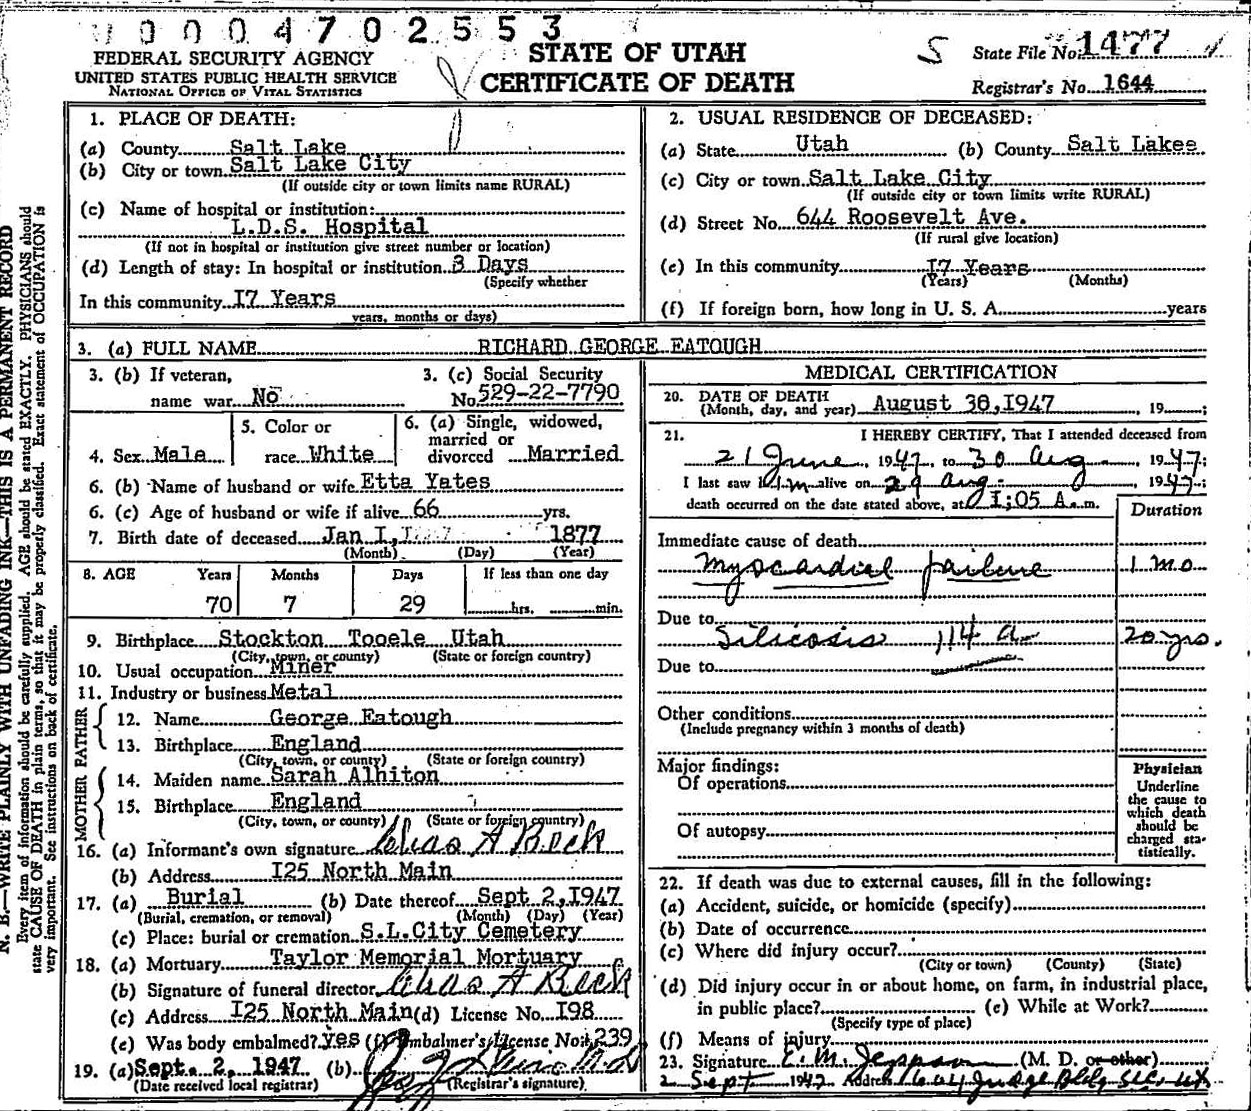 0004702553
FEDERAL SECURITY AGENCY
UNITED STATES PUBLIC HEALTH SERVICE
NATIONAL OFFICE OF VITAL STATISTICS
STATE OF UTAH
CERTIFICATE OF DEATH
S
State File No. 1477
Registrar's No. 1644
N. B.—WRITE PLAINLY WITH UNFADING INK—THIS IS A PERMANENT RECORD
Every item of information should be carefully supplied. AGE should be stated EXACTLY. PHYSICIANS should
state CAUSE OF DEATH in plain terms, so that it may be properly classified. Exact statement of OCCUPATION is
very important. See instructions on back of certificate.
1. PLACE OF DEATH:
(a) County Salt Lake
(b) City or town Salt Lake City
(If outside city or town limits name RURAL)
(c) Name of hospital or institution:
L.D.S. Hospital
(If not in hospital or institution give street number or location)
(d) Length of stay: In hospital or institution 3 Days
(Specify whether
In this community I7 Years
years, months or days)
2. USUAL RESIDENCE OF DECEASED:
(a) State Utah (b) County Salt Lakee
(c) City or town Salt Lake City
(If outside city or town limits write RURAL)
(d) Street No. 644 Roosevelt Ave.
(If rural give location)
(e) In this community I7 Years
(Years) (Months)
(f) If foreign born, how long in U. S. A. years
3. (a) FULL NAME RICHARD GEORGE EATOUGH
3. (b) If veteran,
name war No
3. (c) Social Security
No. 529-22-7790
4. Sex Male
5. Color or
race White
6. (a) Single, widowed,
married or
divorced Married
6. (b) Name of husband or wife Etta Yates
6. (c) Age of husband or wife if alive 66 yrs.
7. Birth date of deceased Jan I, 1877
(Month) (Day) (Year)
8. AGE Years Months Days If less than one day
70 7 29 hrs. min.
9. Birthplace Stockton Tooele Utah
(City, town, or county) (State or foreign country)
10. Usual occupation Miner
11. Industry or business Metal
FATHER
12. Name George Eatough
13. Birthplace England
(City, town, or county) (State or foreign country)
MOTHER
14. Maiden name Sarah Alhiton
15. Birthplace England
(City, town, or county) (State or foreign country)
16. (a) Informant's own signature Chas A Beck
(b) Address I25 North Main
17. (a) Burial (b) Date thereof Sept 2, I947
(Burial, cremation, or removal) (Month) (Day) (Year)
(c) Place: burial or cremation S.L.City Cemetery
18. (a) Mortuary Taylor Memorial Mortuary
(b) Signature of funeral director Chas A Beck
(c) Address I25 North Main (d) License No. I98
(e) Was body embalmed? yes (f) Embalmer's License No. 239
19. (a) Sept. 2, 1947 (b)
(Date received local registrar) (Registrar's signature)
MEDICAL CERTIFICATION
20. DATE OF DEATH
(Month, day, and year) August 30, I947, 19
21. I HEREBY CERTIFY, That I attended deceased from
21 June, 1947, to 30 Aug., 1947;
I last saw him alive on 29 Aug., 1947;
death occurred on the date stated above, at I:05 A. m.
Duration
Immediate cause of death
Myocardial failure 1 mo
Due to
Silicosis 114 a 20 yrs.
Due to
Other conditions
(Include pregnancy within 3 months of death)
Major findings:
Of operations
Of autopsy
Physician
Underline
the cause to
which death
should be
charged sta-
tistically.
22. If death was due to external causes, fill in the following:
(a) Accident, suicide, or homicide (specify)
(b) Date of occurrence
(c) Where did injury occur?
(City or town) (County) (State)
(d) Did injury occur in or about home, on farm, in industrial place,
in public place? (e) While at Work?
(Specify type of place)
(f) Means of injury
23. Signature E. M. Jeppson (M. D. or other)
2 Sept 1947 Address Judge Bldg SLC, Ut